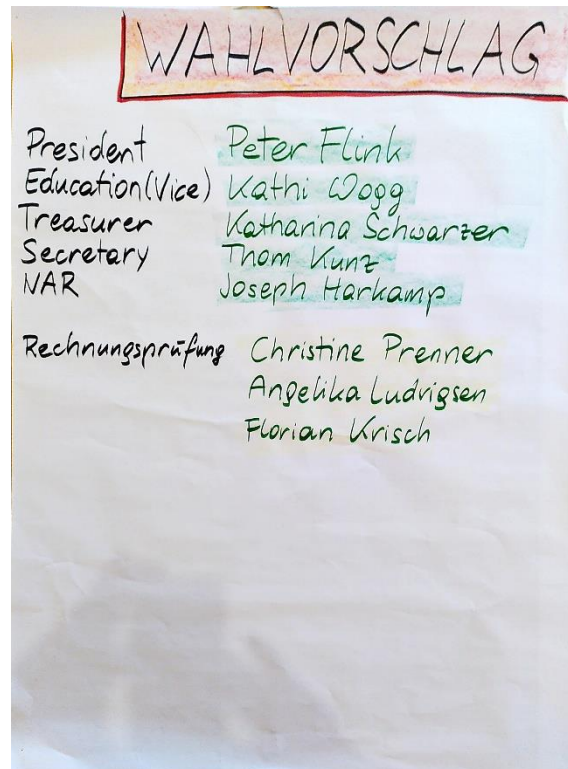 WAHLVORSCHLAG
President Peter Flink
Education (Vice) Kathi Wogg
Treasurer Katharina Schwarzer
Secretary Thom Kunz
NAR Joseph Harkamp
Rechnungsprüfung Christine Prenner
Angelika Ludvigsen
Florian Krisch